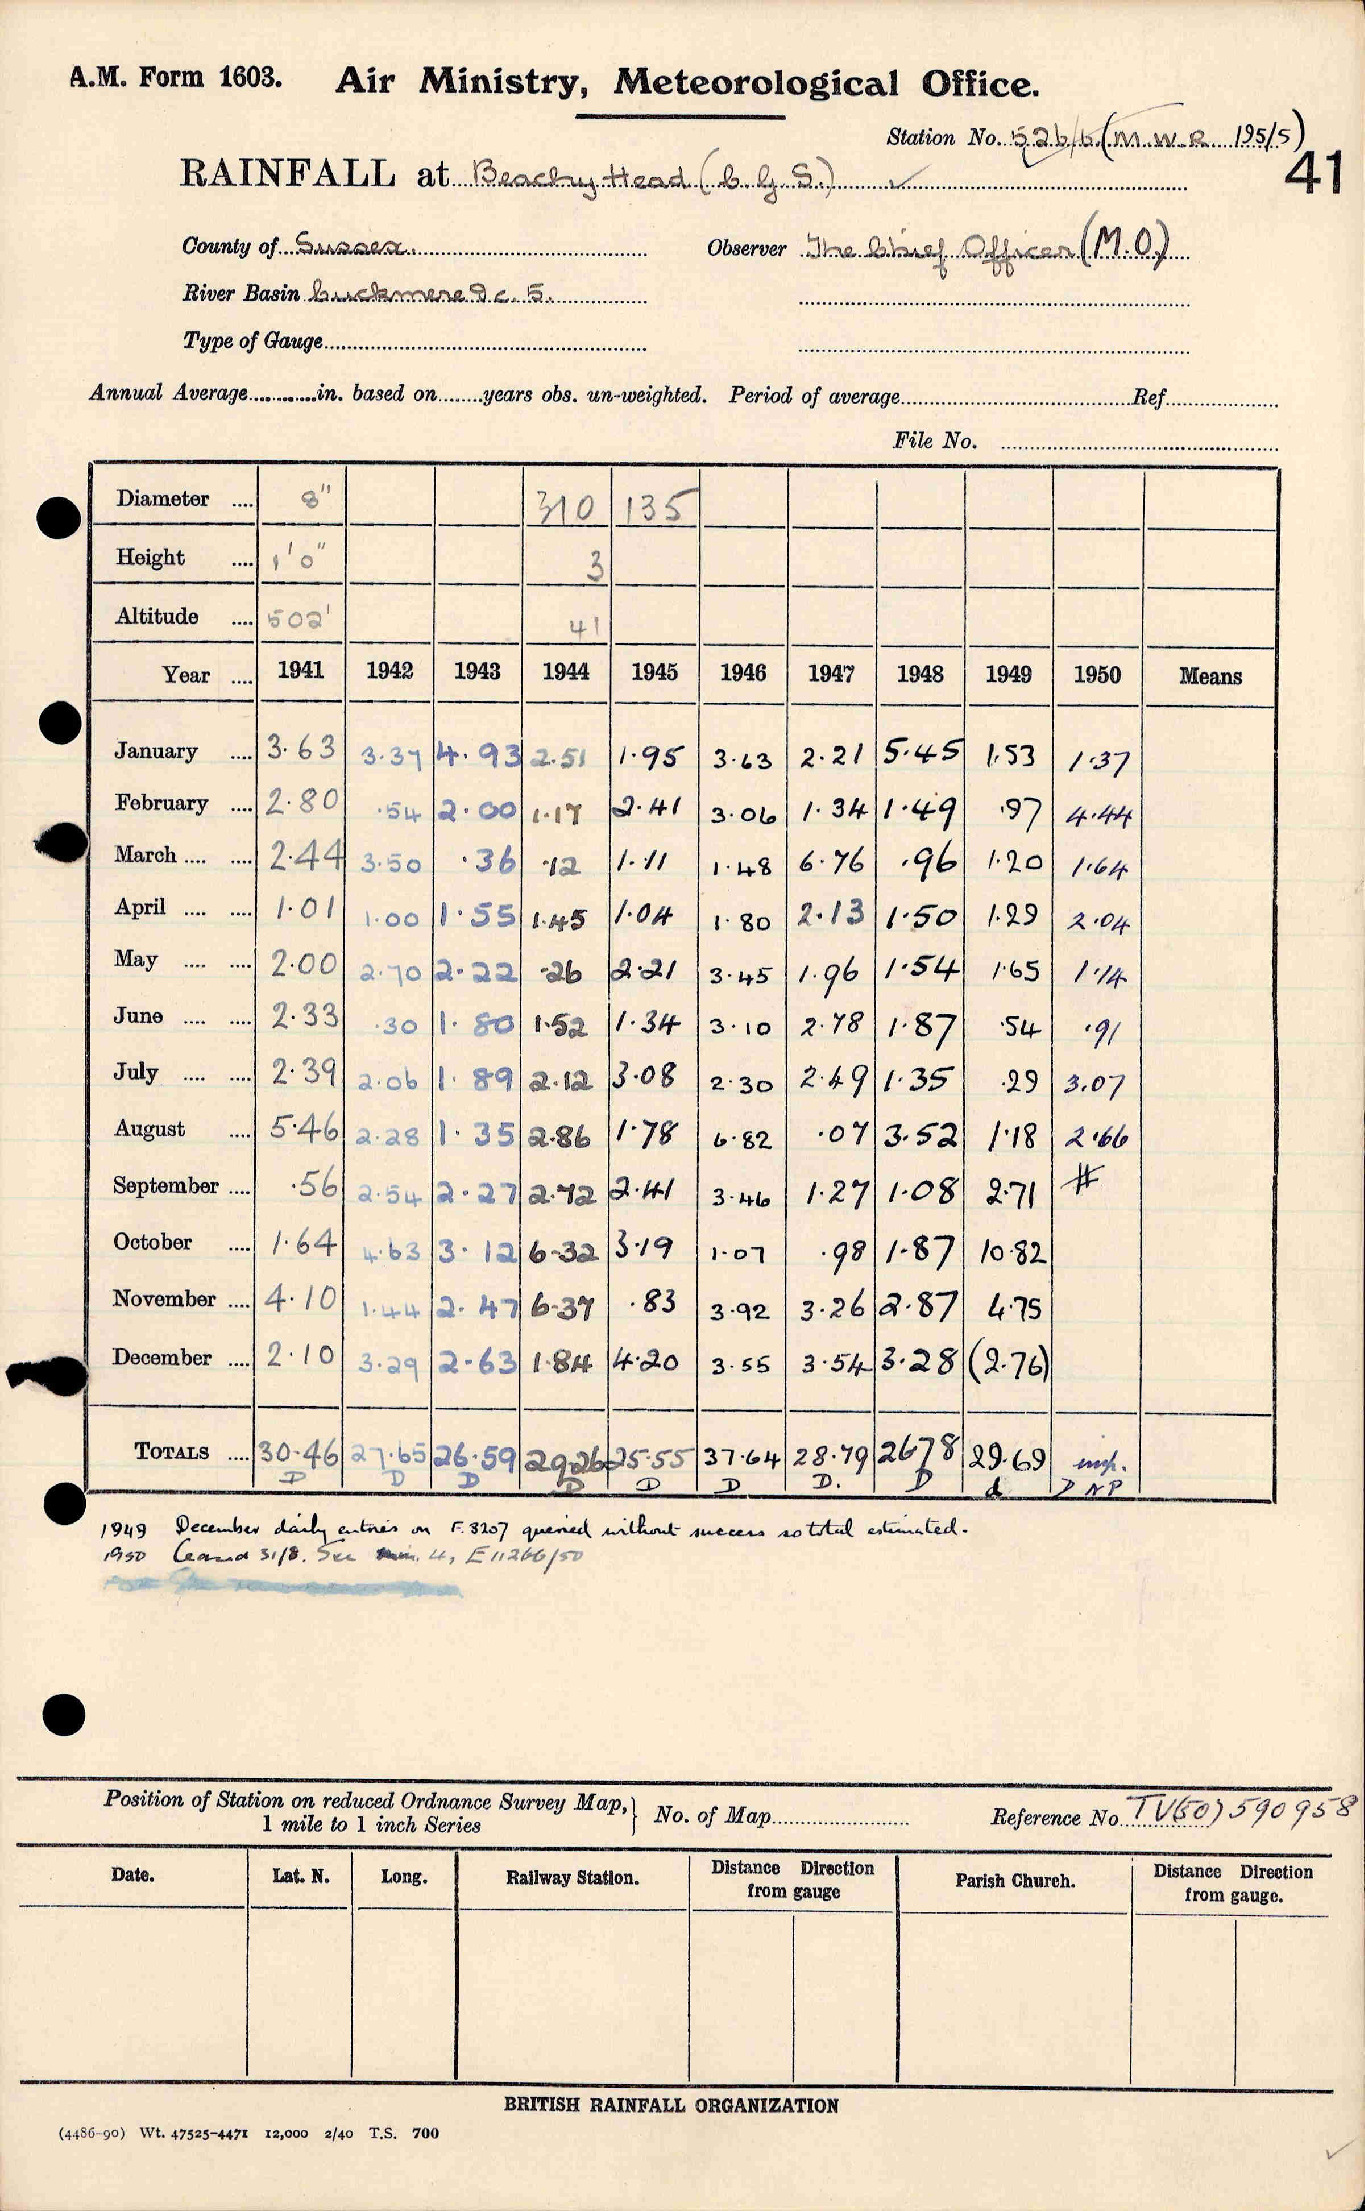 A.M. Form 1603. Air Ministry, Meteorological Office.
Station No. 526/6 (M.W.R. 195/5)
41
RAINFALL at Beachy Head (C.G.S.) ✓
County of Sussex. Observer The Chief Officer (M.O.)
River Basin Cuckmere &c. 5.
Type of Gauge
Annual Average in. based on years obs. un-weighted. Period of average Ref
File No.
Diameter 8" 310 135
Height 1'0" 3
Altitude 502' 41
Year 1941 1942 1943 1944 1945 1946 1947 1948 1949 1950 Means
January 3.63 3.37 4.93 2.51 1.95 3.63 2.21 5.45 1.53 1.37
February 2.80 .54 2.00 1.17 2.41 3.06 1.34 1.49 .97 4.44
March 2.44 3.50 .36 .12 1.11 1.48 6.76 .96 1.20 1.64
April 1.01 1.00 1.55 1.45 1.04 1.80 2.13 1.50 1.29 2.04
May 2.00 2.70 2.22 .26 2.21 3.45 1.96 1.54 1.65 1.14
June 2.33 .30 1.80 1.52 1.34 3.10 2.78 1.87 .54 .91
July 2.39 2.06 1.89 2.12 3.08 2.30 2.49 1.35 .29 3.07
August 5.46 2.28 1.35 2.86 1.78 6.82 .07 3.52 1.18 2.66
September .56 2.54 2.27 2.72 2.41 3.46 1.27 1.08 2.71 #
October 1.64 4.63 3.12 6.32 3.19 1.07 .98 1.87 10.82
November 4.10 1.44 2.47 6.37 .83 3.92 3.26 2.87 4.75
December 2.10 3.29 2.63 1.84 4.20 3.55 3.54 3.28 (2.76)
TOTALS 30.46 27.65 26.59 29.26 25.55 37.64 28.79 26.78 29.69 imp.
D D D D D D D. D d D NP
1949 December daily entries on F.3207 queried without success so total estimated.
1950 Ceased 31/8. See min. 4, E11266/50
Position of Station on reduced Ordnance Survey Map, 1 mile to 1 inch Series } No. of Map Reference No. TV(50) 590958
Date. Lat. N. Long. Railway Station. Distance Direction from gauge Parish Church. Distance Direction from gauge.
BRITISH RAINFALL ORGANIZATION
(4486-90) Wt. 47525-4471 12,000 2/40 T.S. 700